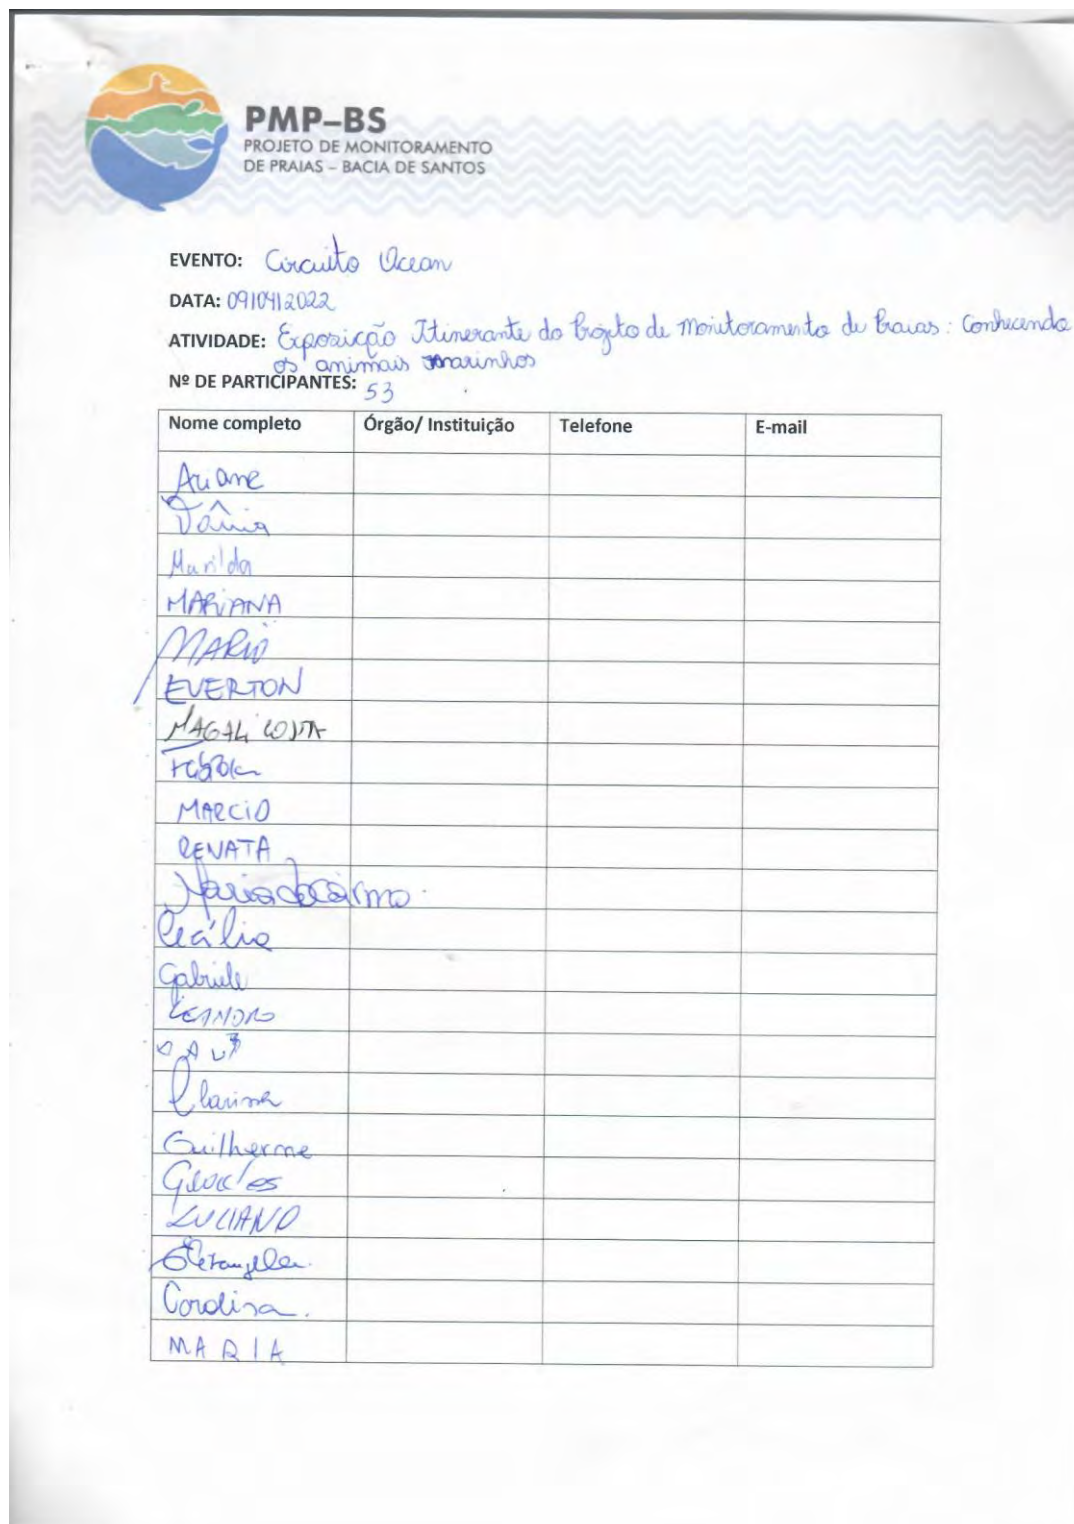 PMP–BS
PROJETO DE MONITORAMENTO
DE PRAIAS – BACIA DE SANTOS
EVENTO: Circuito Ocean
DATA: 09/04/2022
ATIVIDADE: Exposição Itinerante do Projeto de Monitoramento de Praias: Conhecendo
os animais marinhos
Nº DE PARTICIPANTES: 53
Nome completo Órgão/ Instituição Telefone E-mail
Ariane
Vânia
Marilda
MARiANA
MARiO
EVERTON
MAGALi COSTA
MARCiO
RENATA
Maria do Carmo
Cecália
Gabriele
LEANDRO
Guilherme
LUCIANO
MARIA